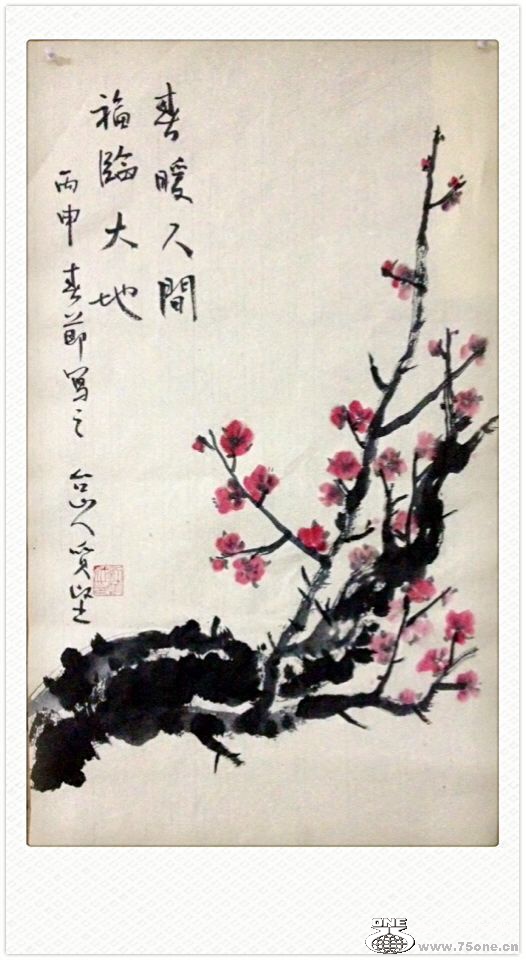 春暖人間
福臨大地
丙申春節寫之
ONE
www.75one.cn